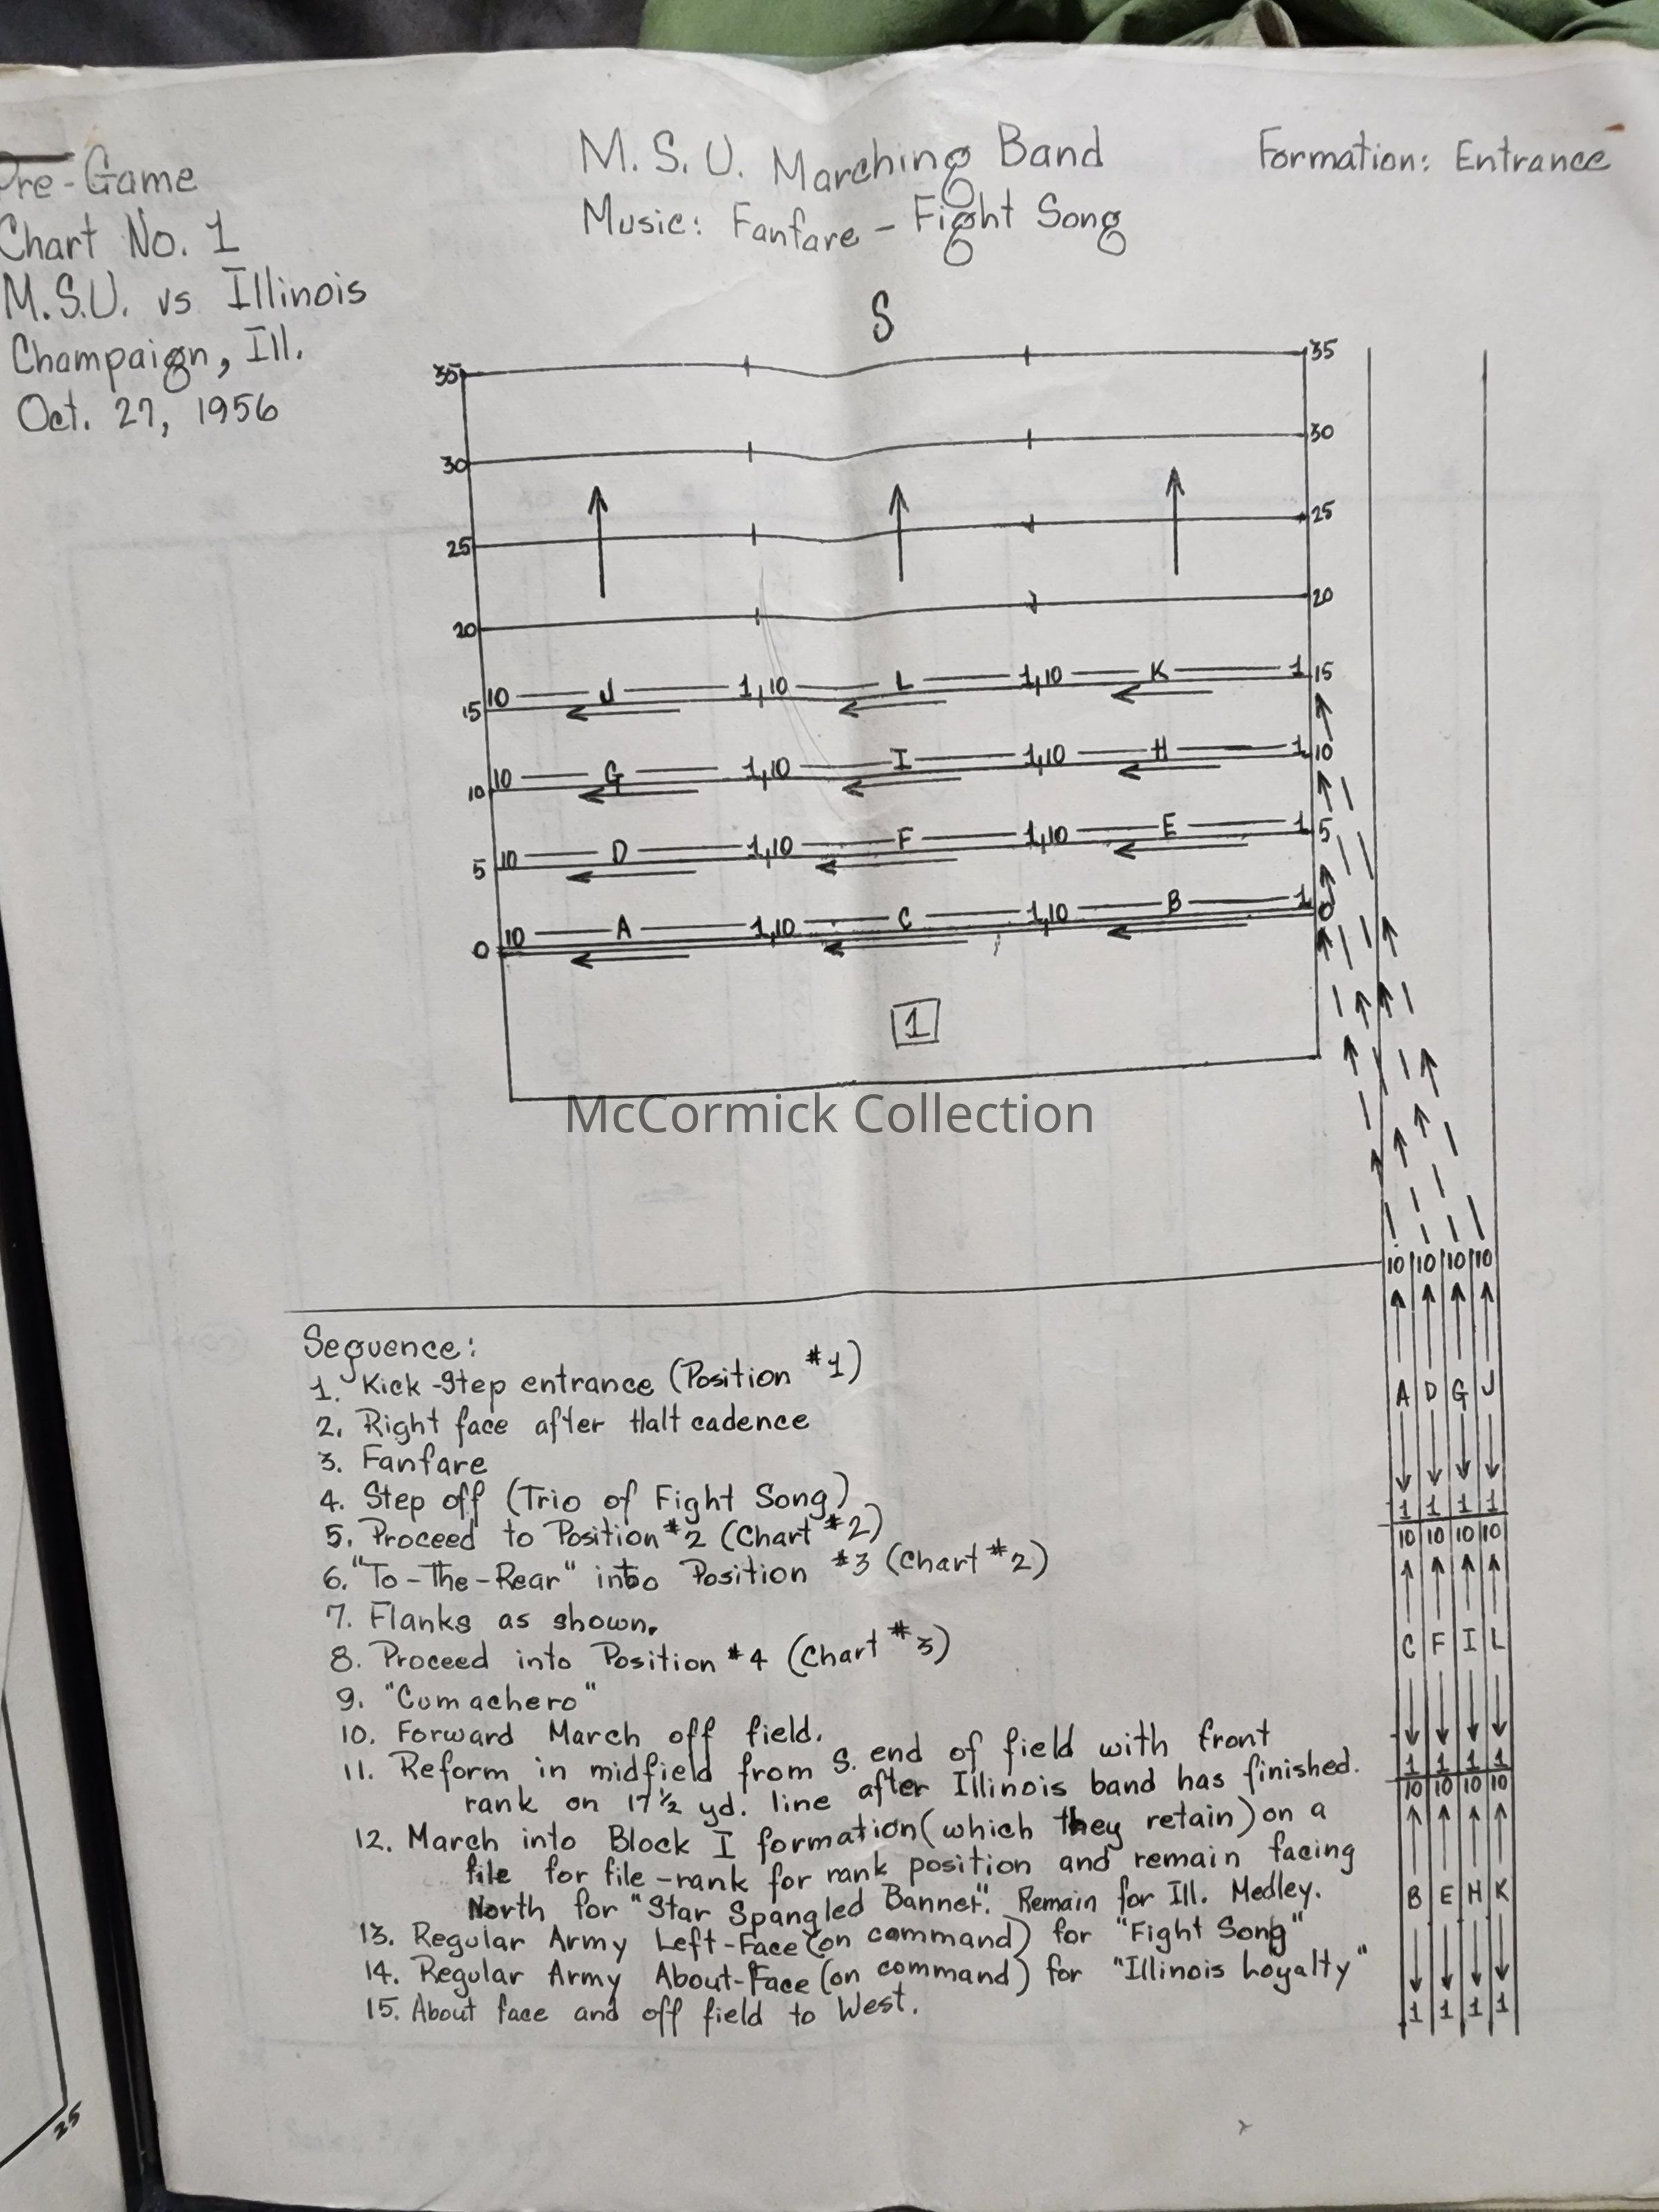 Pre-Game
Chart No. 1
M.S.U. vs Illinois
Champaign, Ill.
Oct. 27, 1956
M.S.U. Marching Band
Music: Fanfare - Fight Song
Formation: Entrance
S
35 35
30 30
25 25
20 20
15 10 J 1,10 L 1,10 K 1 15
10 10 G 1,10 I 1,10 H 1 10
5 10 D 1,10 F 1,10 E 1 5
0 10 A 1,10 C 1,10 B 1 0
1
McCormick Collection
10 10 10 10
A D G J
1 1 1 1
10 10 10 10
C F I L
1 1 1 1
10 10 10 10
B E H K
1 1 1 1
Sequence:
1. Kick-Step entrance (Position #1)
2. Right face after Halt cadence
3. Fanfare
4. Step off (Trio of Fight Song)
5. Proceed to Position #2 (Chart #2)
6. "To-The-Rear" into Position #3 (Chart #2)
7. Flanks as shown.
8. Proceed into Position #4 (Chart #3)
9. "Cumachero"
10. Forward March off field.
11. Reform in midfield from S. end of field with front
rank on 17½ yd. line after Illinois band has finished.
12. March into Block I formation (which they retain) on a
file for file-rank for rank position and remain facing
North for "Star Spangled Banner". Remain for Ill. Medley.
13. Regular Army Left-Face (on command) for "Fight Song"
14. Regular Army About-Face (on command) for "Illinois Loyalty"
15. About face and off field to West.
25